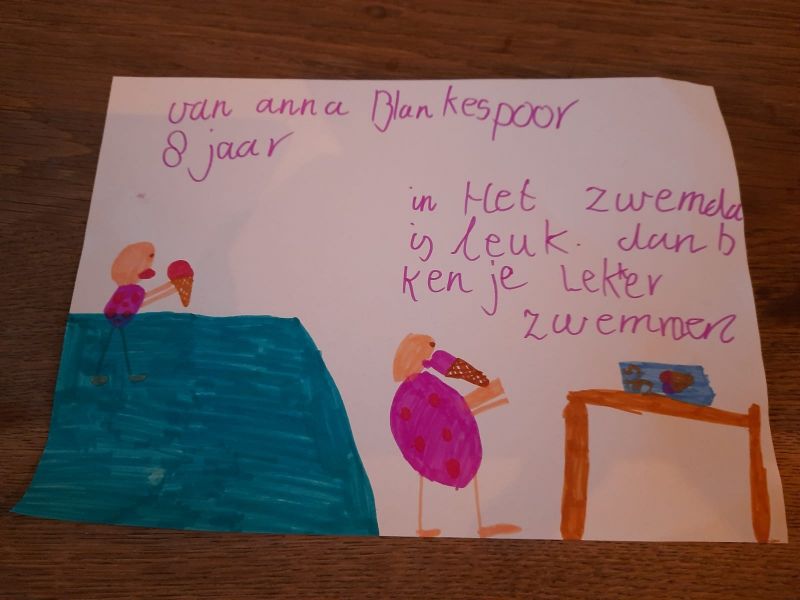 van anna Blankespoor
8 jaar
in Het zwemda
is leuk. dan b
ken je Lekker
zwemmen